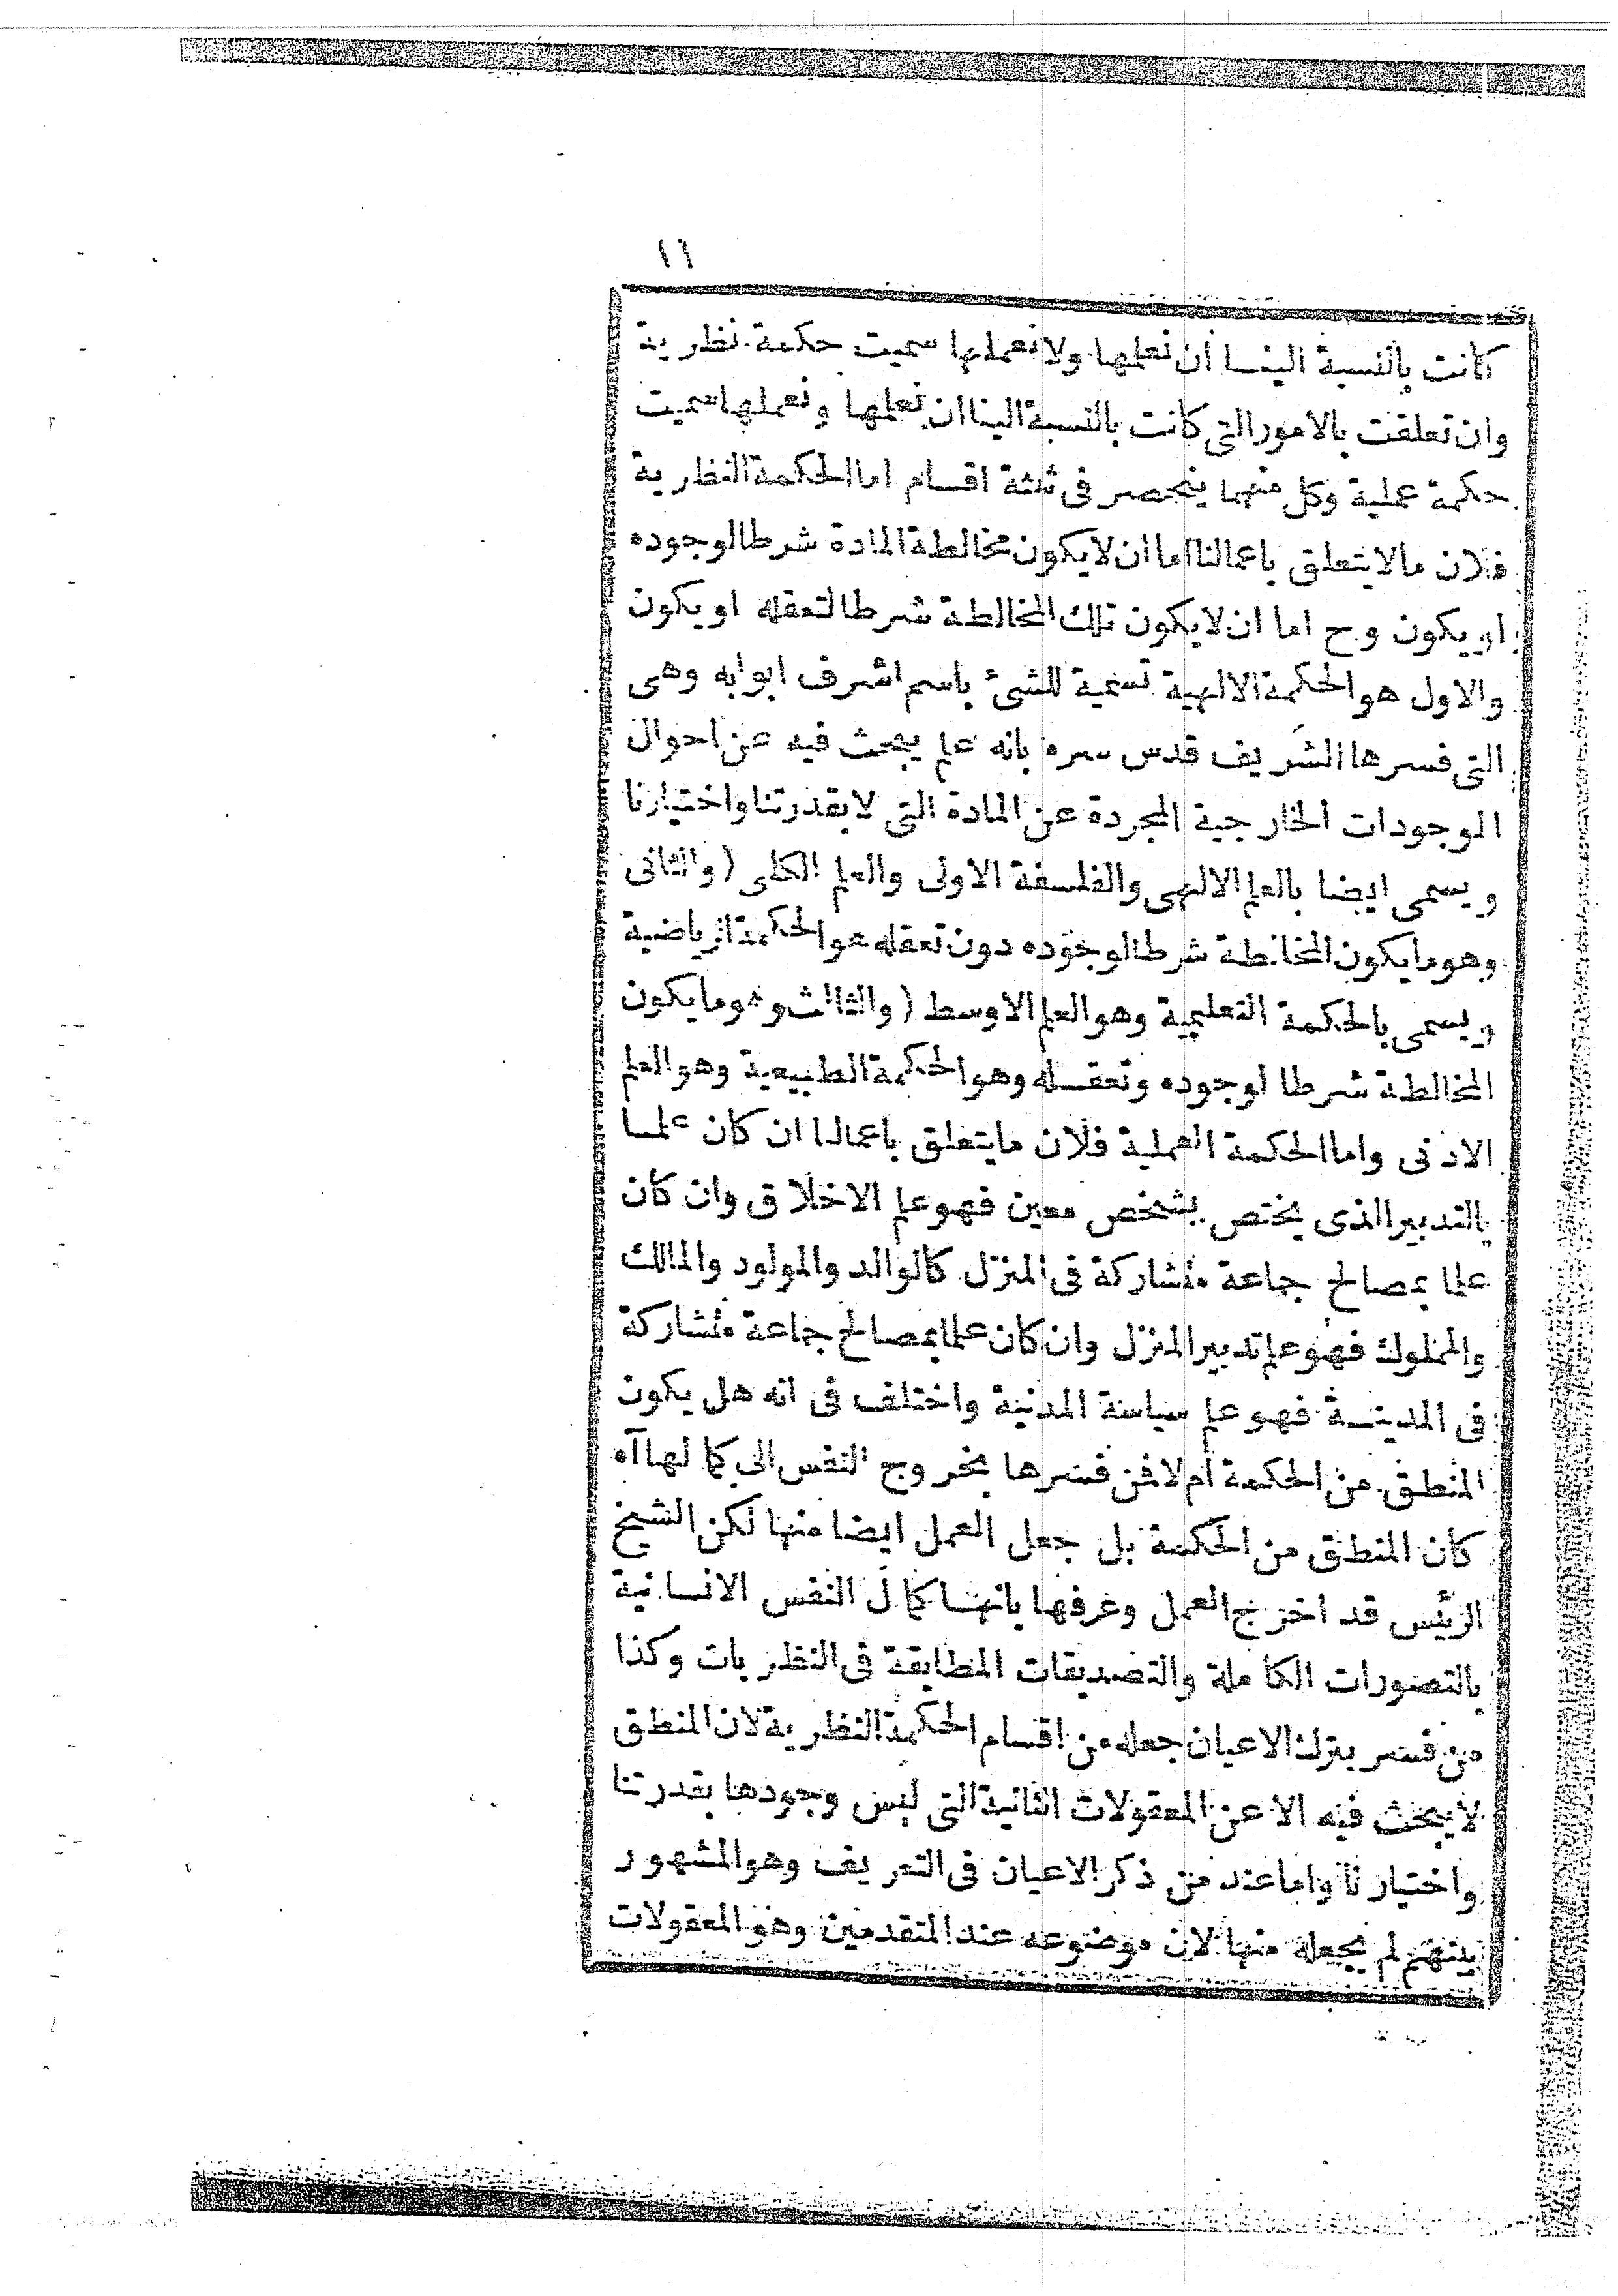 ١١
كانت بالنسبة الينا ان نعلمها ولا نعملها سميت حكمة نظرية
وان تعلقت بالامور التى كانت بالنسبة الينا ان نعلمها ونعملها سميت
حكمة عملية وكل منهما ينحصر فى ثلثة اقسام اما الحكمة النظرية
فلان مالا يتعلق باعمالنا اما ان لا يكون مخالطة المادة شرطا لوجوده
او يكون وح اما ان لا يكون تلك المخالطة شرطا لتعقله او يكون
والاول هو الحكمة الالهية تسمية للشئ باسم اشرف ابوابه وهى
التى فسرها الشريف قدس سره بانه علم يبحث فيه عن احوال
الموجودات الخارجية المجردة عن المادة التى لا بقدرتنا واختيارنا
ويسمى ايضا بالعلم الالهى والفلسفة الاولى والعلم الكلى (والثانى
وهو ما يكون المخالطة شرطا لوجوده دون تعقله هو الحكمة الرياضية
ويسمى بالحكمة التعليمية وهو العلم الاوسط (والثالث وهو ما يكون
المخالطة شرطا لوجوده وتعقله وهو الحكمة الطبيعية وهو العلم
الادنى واما الحكمة العملية فلان ما يتعلق باعمالنا ان كان علما
بالتدبير الذى يختص بشخص معين فهو علم الاخلاق وان كان
علما بمصالح جماعة متشاركة فى المنزل كالوالد والمولود والمالك
والمملوك فهو علم تدبير المنزل وان كان علما بمصالح جماعة متشاركة
فى المدينة فهو علم سياسة المدنية واختلف فى انه هل يكون
المنطق من الحكمة ام لا فمن فسرها بخروج النفس الى كمالها آه
كان المنطق من الحكمة بل جعل العمل ايضا منها لكن الشيخ
الرئيس قد اخرج العمل وعرفها بانها كمال النفس الانسانية
بالتصورات الكاملة والتصديقات المطابقة فى النظريات وكذا
من فسر بترك الاعيان جعله من اقسام الحكمة النظرية لان المنطق
لا يبحث فيه الا عن المعقولات الثانية التى ليس وجودها بقدرتنا
واختيارنا واما عند من ذكر الاعيان فى التعريف وهو المشهور
بينهم لم يجعله منها لان موضوعه عند المتقدمين وهو المعقولات